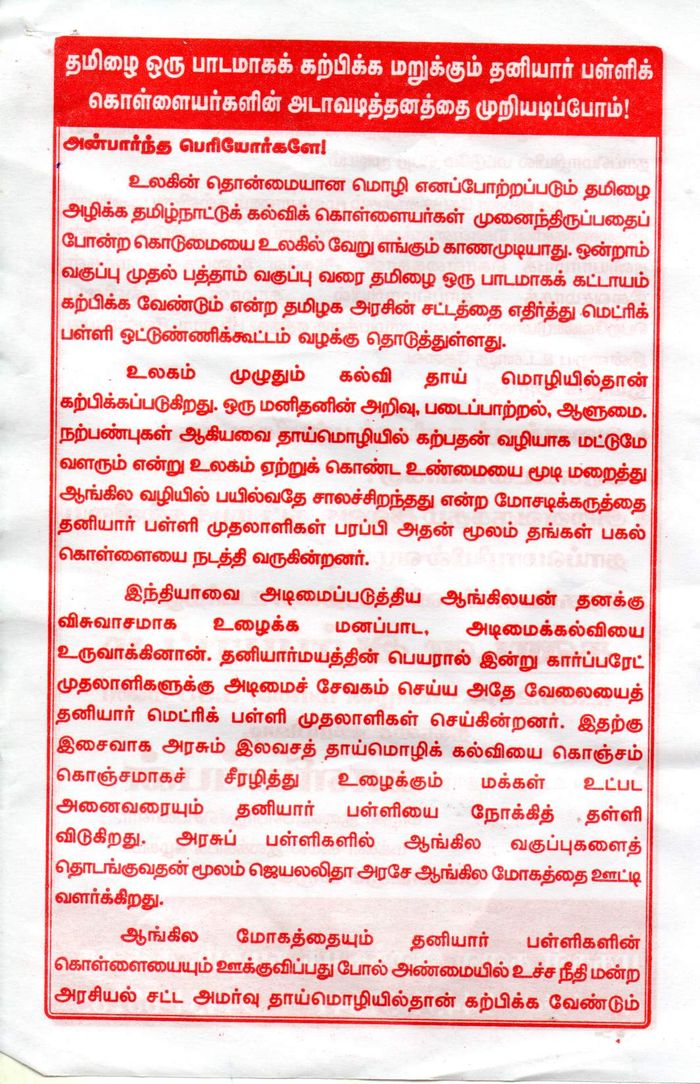 தமிழை ஒரு பாடமாகக் கற்பிக்க மறுக்கும் தனியார் பள்ளிக்
கொள்ளையர்களின் அடாவடித்தனத்தை முறியடிப்போம்!
அன்பார்ந்த பெரியோர்களே!
உலகின் தொன்மையான மொழி எனப்போற்றப்படும் தமிழை
அழிக்க தமிழ்நாட்டுக் கல்விக் கொள்ளையர்கள் முனைந்திருப்பதைப்
போன்ற கொடுமையை உலகில் வேறு எங்கும் காணமுடியாது. ஒன்றாம்
வகுப்பு முதல் பத்தாம் வகுப்பு வரை தமிழை ஒரு பாடமாகக் கட்டாயம்
கற்பிக்க வேண்டும் என்ற தமிழக அரசின் சட்டத்தை எதிர்த்து மெட்ரிக்
பள்ளி ஒட்டுண்ணிக்கூட்டம் வழக்கு தொடுத்துள்ளது.
உலகம் முழுதும் கல்வி தாய் மொழியில்தான்
கற்பிக்கப்படுகிறது. ஒரு மனிதனின் அறிவு, படைப்பாற்றல், ஆளுமை.
நற்பண்புகள் ஆகியவை தாய்மொழியில் கற்பதன் வழியாக மட்டுமே
வளரும் என்று உலகம் ஏற்றுக் கொண்ட உண்மையை மூடி மறைத்து
ஆங்கில வழியில் பயில்வதே சாலச்சிறந்தது என்ற மோசடிக்கருத்தை
தனியார் பள்ளி முதலாளிகள் பரப்பி அதன் மூலம் தங்கள் பகல்
கொள்ளையை நடத்தி வருகின்றனர்.
இந்தியாவை அடிமைப்படுத்திய ஆங்கிலயன் தனக்கு
விசுவாசமாக உழைக்க மனப்பாட, அடிமைக்கல்வியை
உருவாக்கினான். தனியார்மயத்தின் பெயரால் இன்று கார்ப்பரேட்
முதலாளிகளுக்கு அடிமைச் சேவகம் செய்ய அதே வேலையைத்
தனியார் மெட்ரிக் பள்ளி முதலாளிகள் செய்கின்றனர். இதற்கு
இசைவாக அரசும் இலவசத் தாய்மொழிக் கல்வியை கொஞ்சம்
கொஞ்சமாகச் சீரழித்து உழைக்கும் மக்கள் உட்பட
அனைவரையும் தனியார் பள்ளியை நோக்கித் தள்ளி
விடுகிறது. அரசுப் பள்ளிகளில் ஆங்கில வகுப்புகளைத்
தொடங்குவதன் மூலம் ஜெயலலிதா அரசே ஆங்கில மோகத்தை ஊட்டி
வளர்க்கிறது.
ஆங்கில மோகத்தையும் தனியார் பள்ளிகளின்
கொள்ளையையும் ஊக்குவிப்பது போல் அண்மையில் உச்ச நீதி மன்ற
அரசியல் சட்ட அமர்வு தாய்மொழியில்தான் கற்பிக்க வேண்டும்